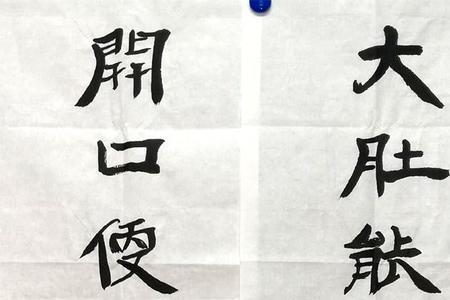 大肚能
開口便